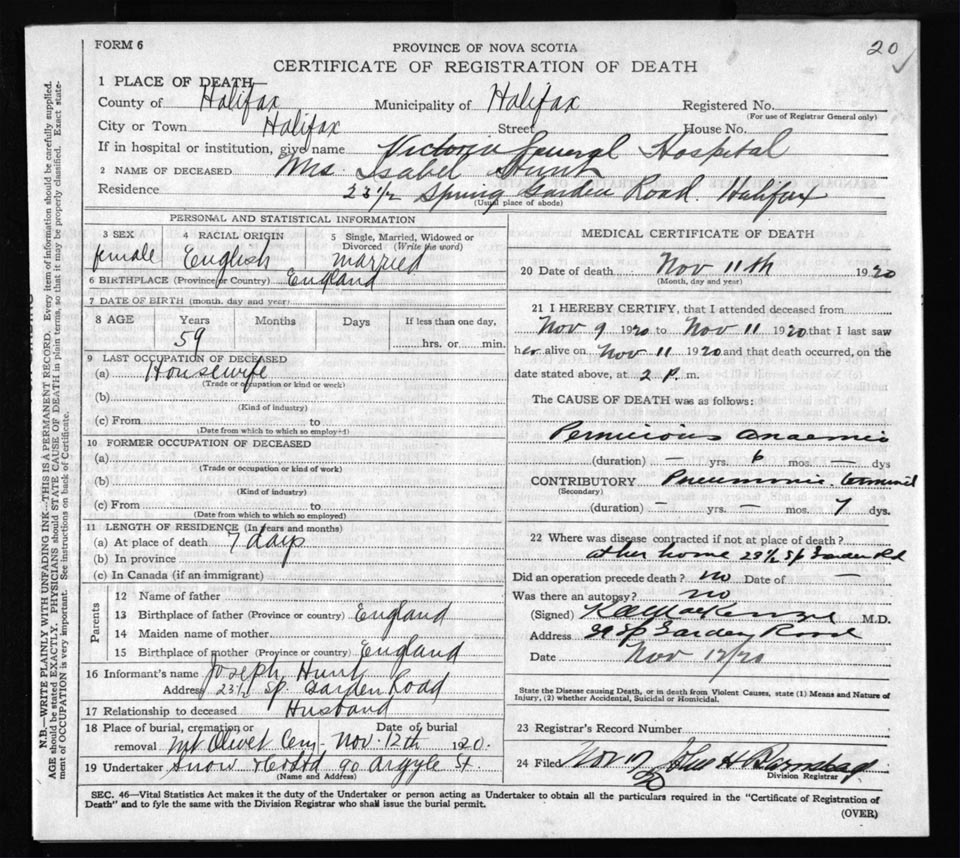 FORM 6
20
PROVINCE OF NOVA SCOTIA
CERTIFICATE OF REGISTRATION OF DEATH
1 PLACE OF DEATH—
County of Halifax Municipality of Halifax Registered No.
(For use of Registrar General only)
City or Town Halifax Street House No.
If in hospital or institution, give name Victoria General Hospital
2 NAME OF DECEASED Mrs Isabel Hunt
Residence 23 1/2 Spring Garden Road. Halifax
(Usual place of abode)
PERSONAL AND STATISTICAL INFORMATION
3 SEX 4 RACIAL ORIGIN 5 Single, Married, Widowed or Divorced (Write the word)
female English married
6 BIRTHPLACE (Province or Country) England
7 DATE OF BIRTH (month, day and year)
8 AGE Years Months Days If less than one day,
59 hrs. or min.
9 LAST OCCUPATION OF DECEASED
(a) Housewife
(Trade or occupation or kind or work)
(b)
(Kind of industry)
(c) From to
(Date from which to which so employed)
10 FORMER OCCUPATION OF DECEASED
(a)
(Trade or occupation or kind of work)
(b)
(Kind of industry)
(c) From to
(Date from which to which so employed)
11 LENGTH OF RESIDENCE (In years and months)
(a) At place of death 7 days
(b) In province
(c) In Canada (if an immigrant)
Parents
12 Name of father
13 Birthplace of father (Province or country) England
14 Maiden name of mother
15 Birthplace of mother (Province or country) England
16 Informant's name Joseph Hunt
Address 23 1/2 Sp. Garden Road
17 Relationship to deceased Husband
18 Place of burial, cremation or Date of burial
removal Mt Olivet Cem. Nov. 12th 1920.
19 Undertaker Snow 90 Argyle St.
(Name and Address)
MEDICAL CERTIFICATE OF DEATH
20 Date of death Nov 11th 1920
(Month, day and year)
21 I HEREBY CERTIFY, that I attended deceased from
Nov 9 1920 to Nov 11 1920 that I last saw
her alive on Nov 11 1920 and that death occurred, on the
date stated above, at 2 P. m.
The CAUSE OF DEATH was as follows:
Pernicious anaemia
(duration) — yrs. 6 mos. — dys
CONTRIBUTORY Pneumonia terminal
(Secondary)
(duration) — yrs. — mos. 7 dys.
22 Where was disease contracted if not at place of death?
at her home 23 1/2 Sp Garden Rd
Did an operation precede death? no Date of —
Was there an autopsy? no
(Signed) MacKenzie M.D.
Address Sp Garden Road
Date Nov 12/20
State the Disease causing Death, or in death from Violent Causes, state (1) Means and Nature of
Injury, (2) whether Accidental, Suicidal or Homicidal.
23 Registrar's Record Number
24 Filed Nov
Division Registrar
SEC. 46—Vital Statistics Act makes it the duty of the Undertaker or person acting as Undertaker to obtain all the particulars required in the "Certificate of Registration of
Death" and to fyle the same with the Division Registrar who shall issue the burial permit.
(OVER)
N.B.—WRITE PLAINLY WITH UNFADING INK—THIS IS A PERMANENT RECORD. Every item of information should be carefully supplied.
AGE should be stated EXACTLY. PHYSICIANS should STATE CAUSE OF DEATH in plain terms, so that it may be properly classified. Exact state-
ment of OCCUPATION is very important. See instructions on back of Certificate.